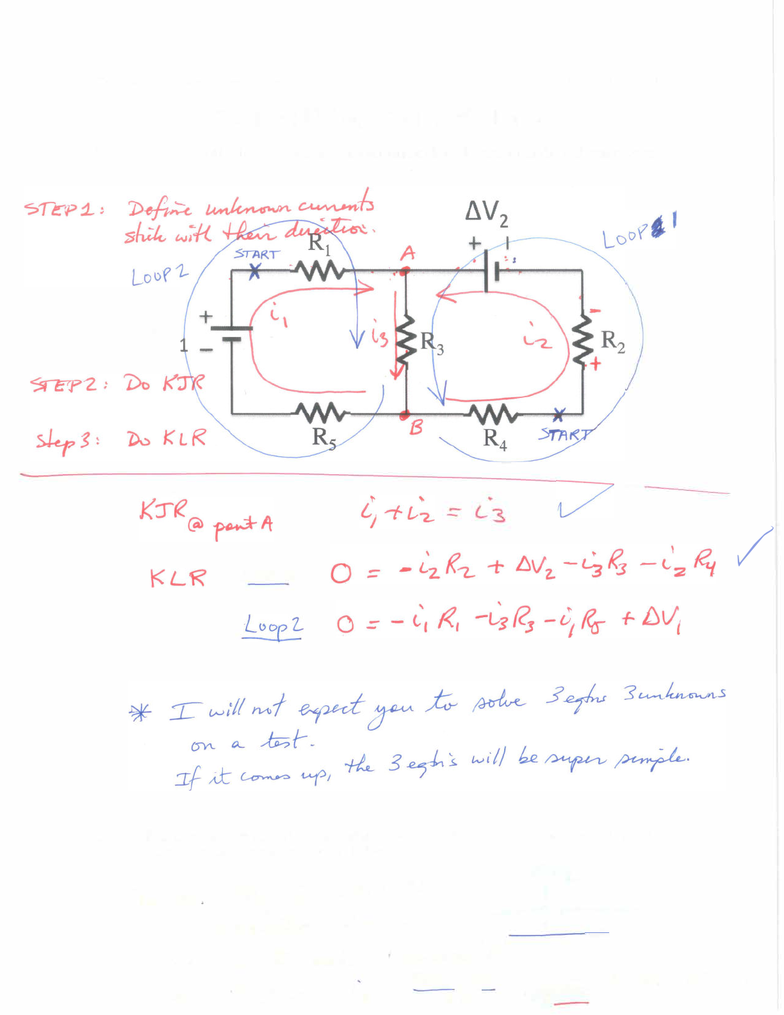 STEP1: Define unknown currents
stick with their direction.
ΔV₂
LOOP 1
+ -
R₁
A
START
LOOP 2
+
1 -
i₁
i₃
R₃
i₂
-
R₂
+
STEP2: Do KJR
Step 3: Do KLR
R₅
B
R₄
START
KJR @ point A i₁ + i₂ = i₃
KLR — 0 = - i₂R₂ + ΔV₂ - i₃R₃ - i₂R₄
Loop 2 0 = - i₁R₁ - i₃R₃ - i₁R₅ + ΔV₁
* I will not expect you to solve 3 eqtns 3 unknowns
on a test.
If it comes up, the 3 eqtn's will be super simple.